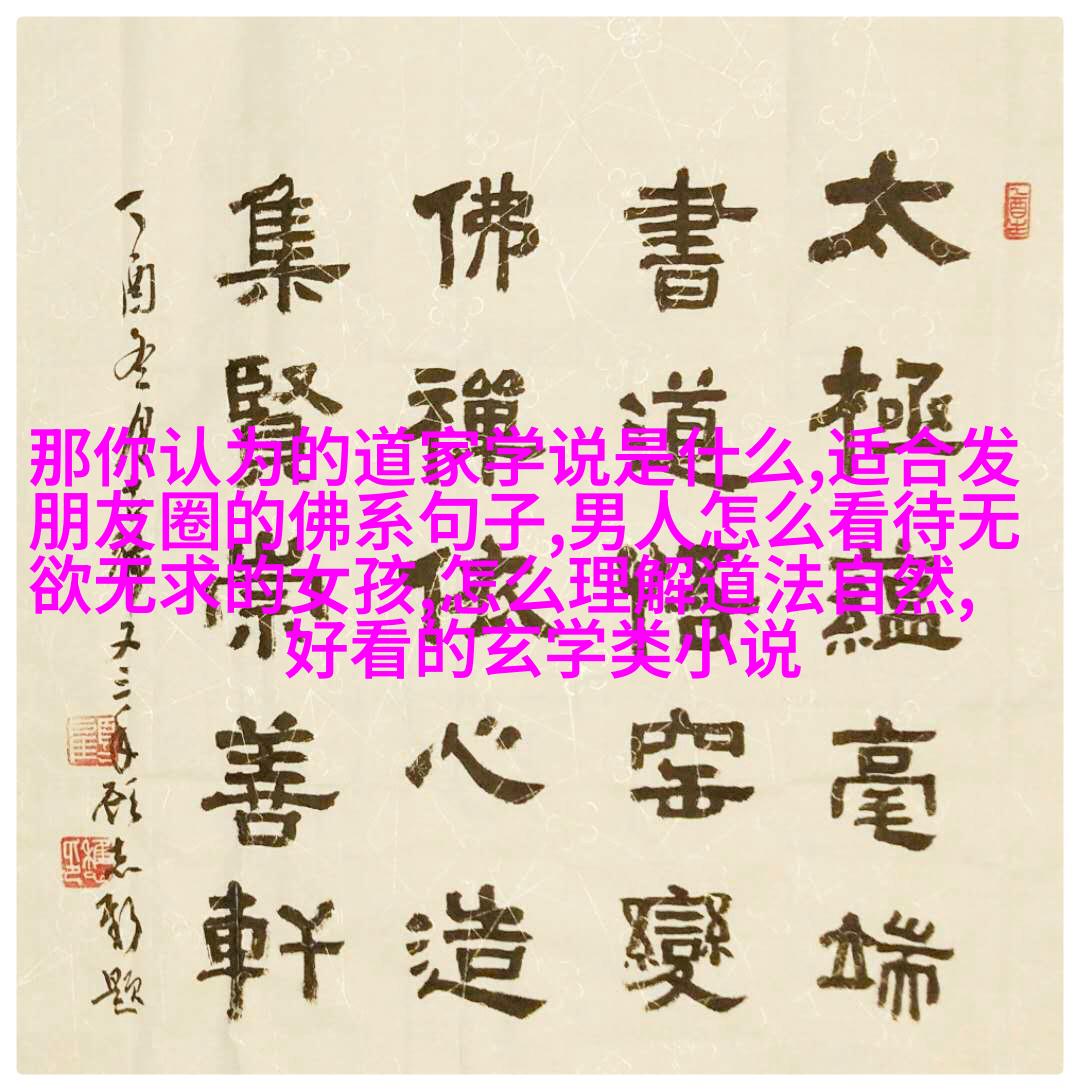 那你认为的道家学说是什么,适合发
朋友圈的佛系句子,男人怎么看待无
欲无求的女孩,怎么理解道法自然,
好看的玄学类小说
太極蘊毫端
書道悟窑變
佛禪依心造
集賢崇善軒
丁酉冬月
又三年顧志新題